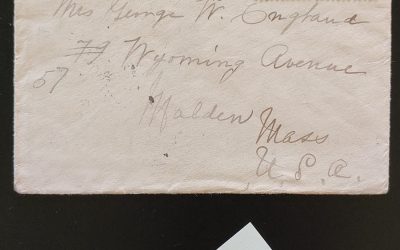 Mrs George W. England
79 Wyoming Avenue
57
Malden
Mass
U. S. A.